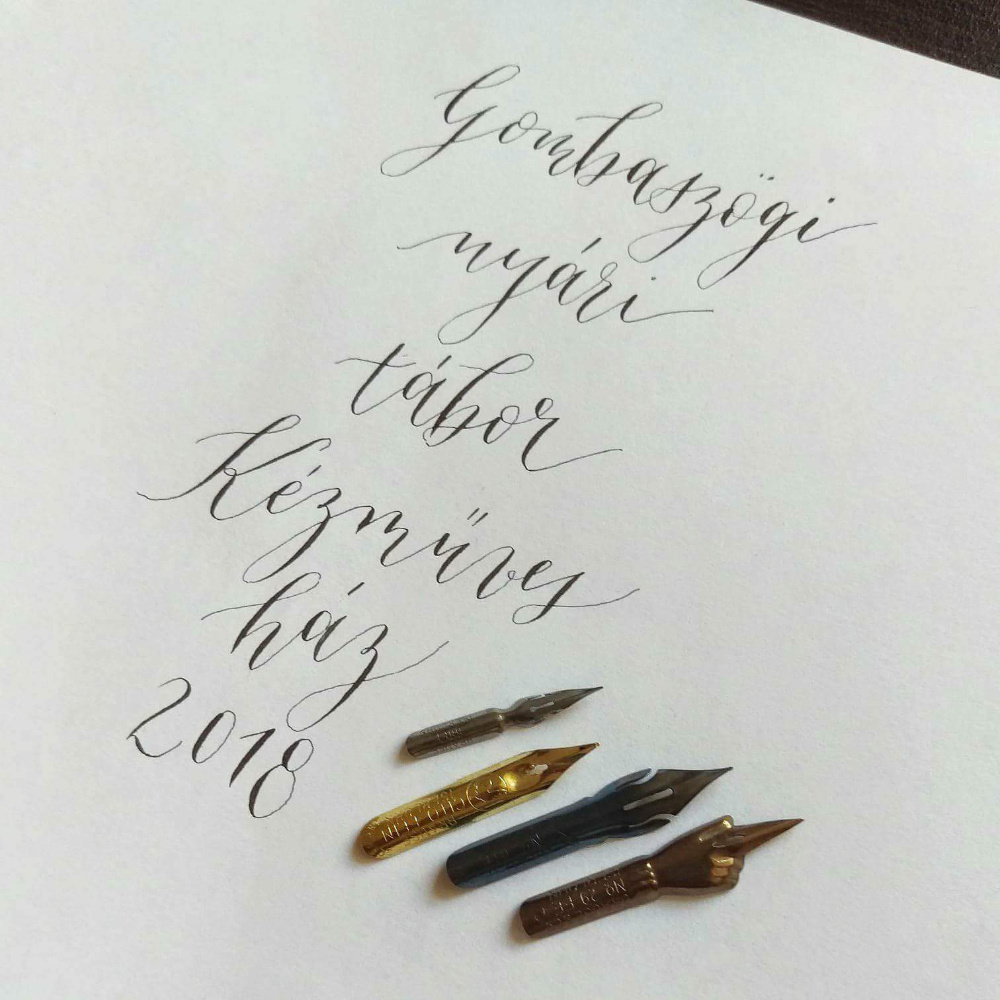 Gombaszögi
nyári
tábor
Kézműves
ház
2018